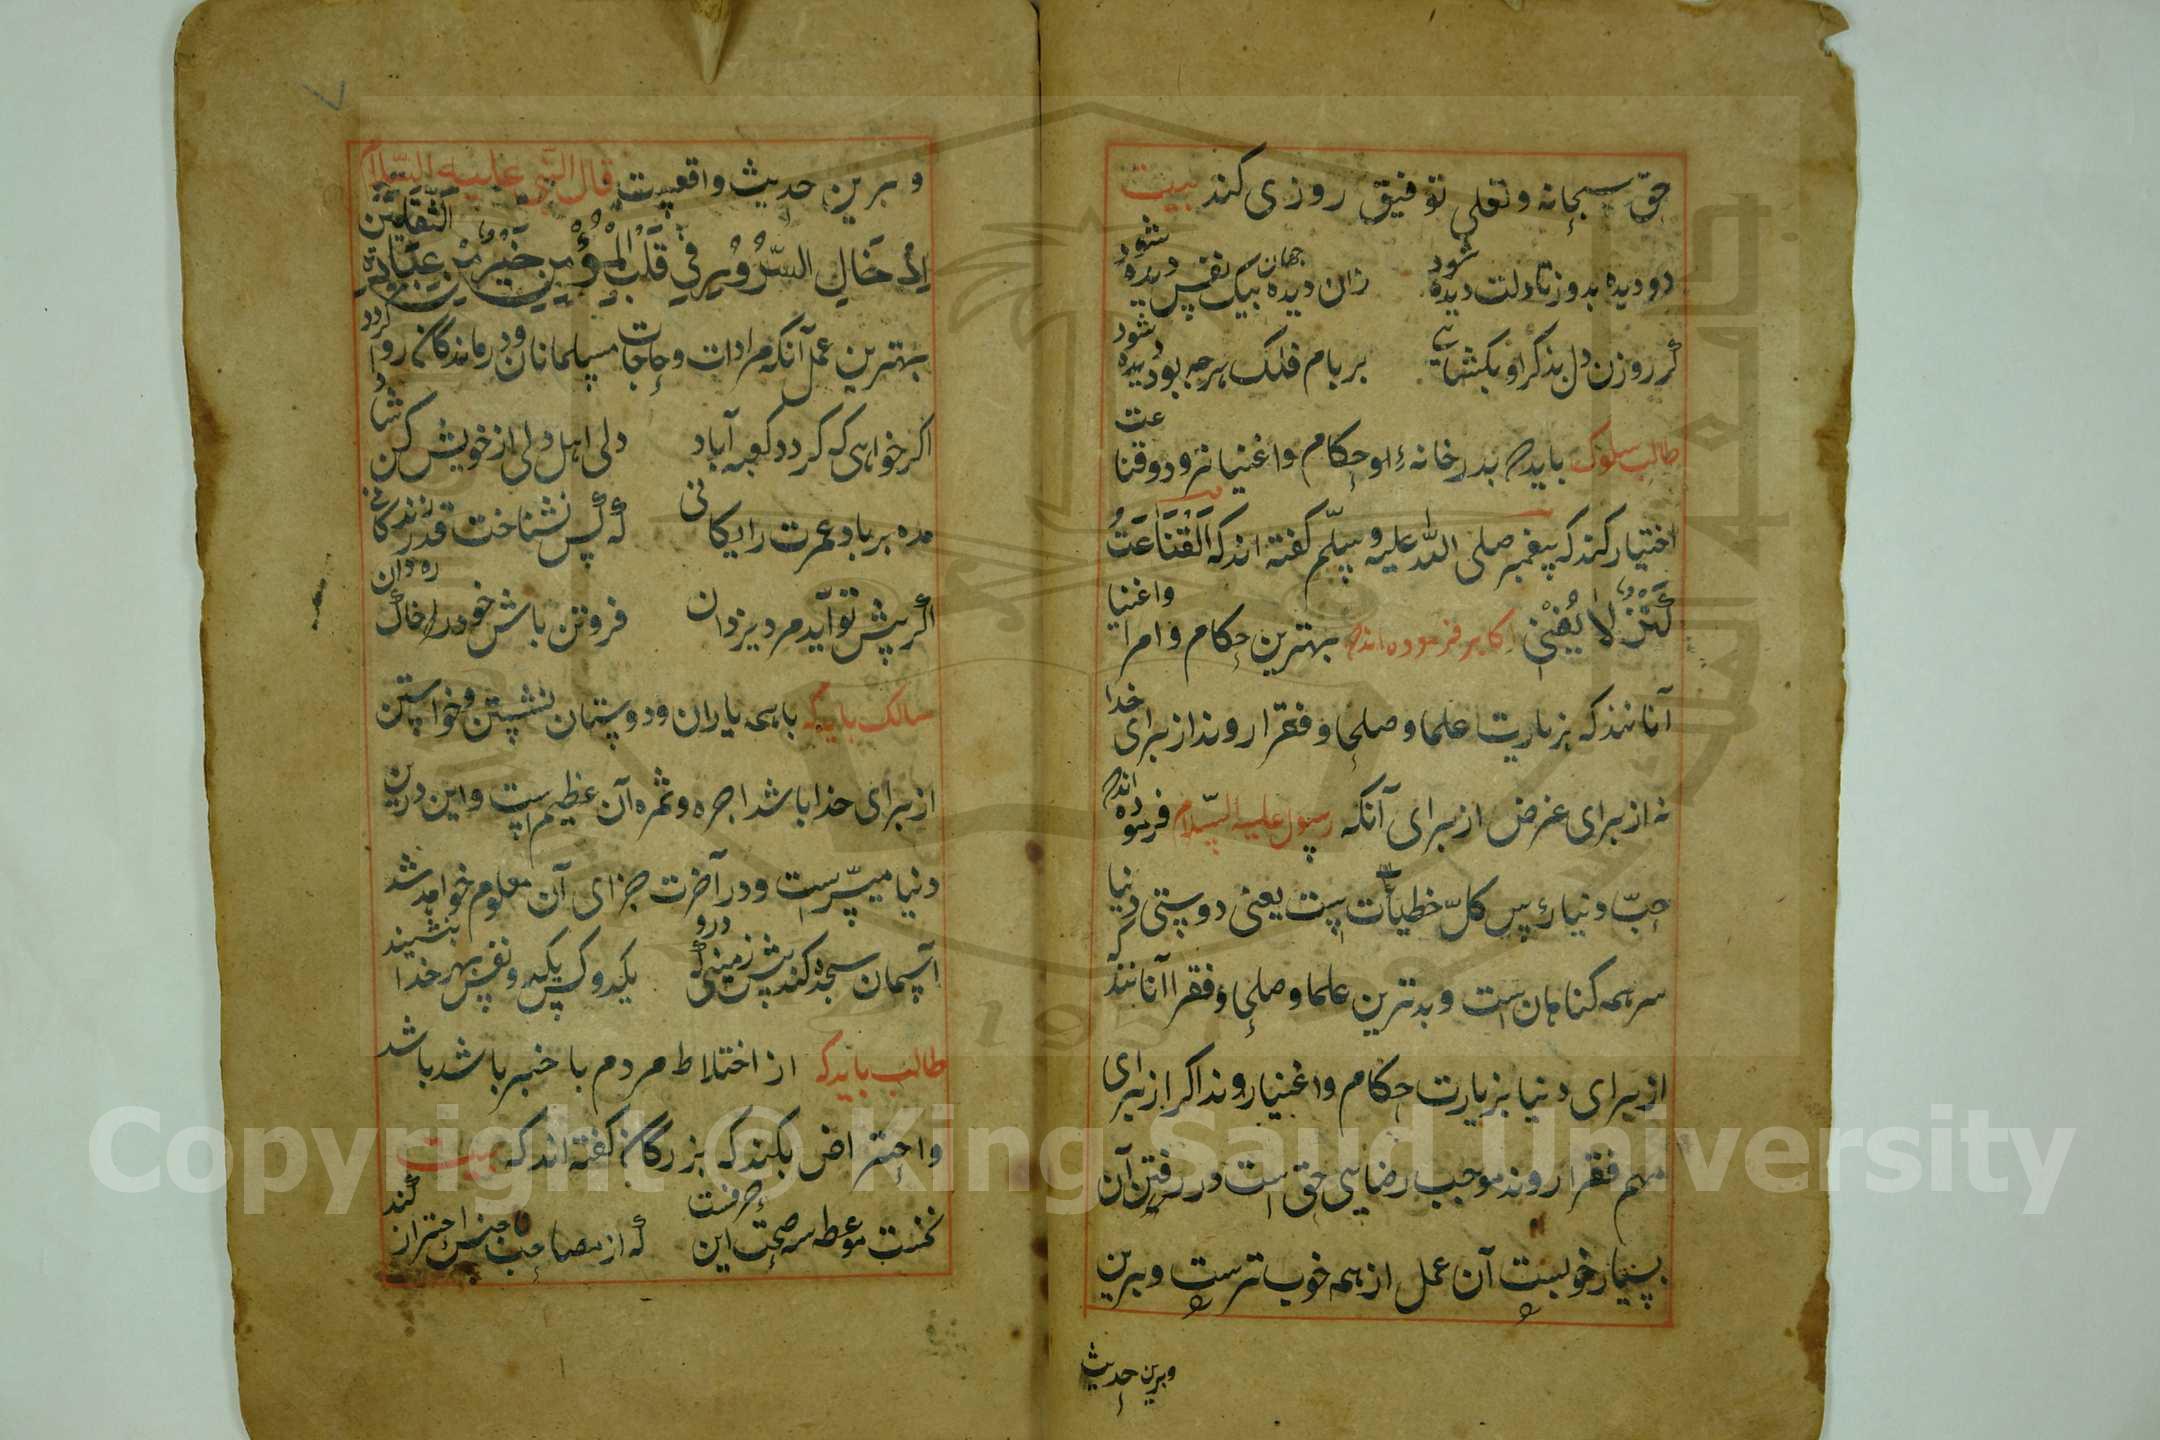 حق سبحانه وتعلی توفیق روزی کند بیت
دو دیده بدوز تا دلت دیده شود زان دیده جهان بیک نفس دیده شود
گر روزن دل بذکر او بکشائی بر بام فلک هرچه بود دیده شود
طالب سلوک باید که بدر خانهٔ او حکام واغنیا نرود وقناعت
اختیار کند که پیغمبر صلی الله علیه وسلّم کفته اند که اَلْقَنَاعَتُ
کَنْزٌ لا یُفْنیٰ اکابر فرموده اند که بهترین حکام وامرا واغنیا
آنانند که بزیارت علما وصلحا وفقرا روند از برای خدا
نه از برای غرض از برای آنکه رسول علیه السّلام فرموده اند که
حبّ دنیا رٔس کلّ خطیأت ست یعنی دوستی دنیا
سر همه کناهان است وبدترین علما وصلحا وفقرا آنانند که
از برای دنیا بزیارت حکام واغنیا روند اکر از برای
مهم فقرا روند موجب رضایی حق است در رفتن آن
بسیار خوبست آن عمل از همه خوب ترست وبرین
وبرین حدیث
وبرین حدیث واقعست قال النّبی علیه السّلام
اِدْخَالِ السُّرُوْرِ فِی قَلْبِ الْمُؤْمِنِ خَیْرٌ مِنْ عِبَادَةِ الثَّقَلَیْنِ
بهترین عمل آنکه مرادات وحاجات مسلمانان ودرماندکان روا کردد
اکر خواهی که کردد کعبه آباد دلی اهل دلی از خویش کن شاد
مده بر باد عمرت رایکانی که کس نشناخت قدر زندکانی
اکر پیش تو آید مرد یزدان فروتن باش خود را خاک ره دان
سالک باید که با همه یاران ودوستان نشستن وخواستن
از برای خدا باشد اجره وثمره آن عظیم است واین درین
دنیا میسّرست ودر آخرت جزای آن معلوم خواهد شد
آسمان سجده کند پیش زمینی که درو یکدو کس یکدو نفس بهر خدا بنشیند
طالب باید که از اختلاط مردم با خبر باشد باشد
واحتراض بکند که بزرکان کفته اند که بیت
نخست موعظه صحبت این حرفست که از مصاحب ناجنس احتراز کنید